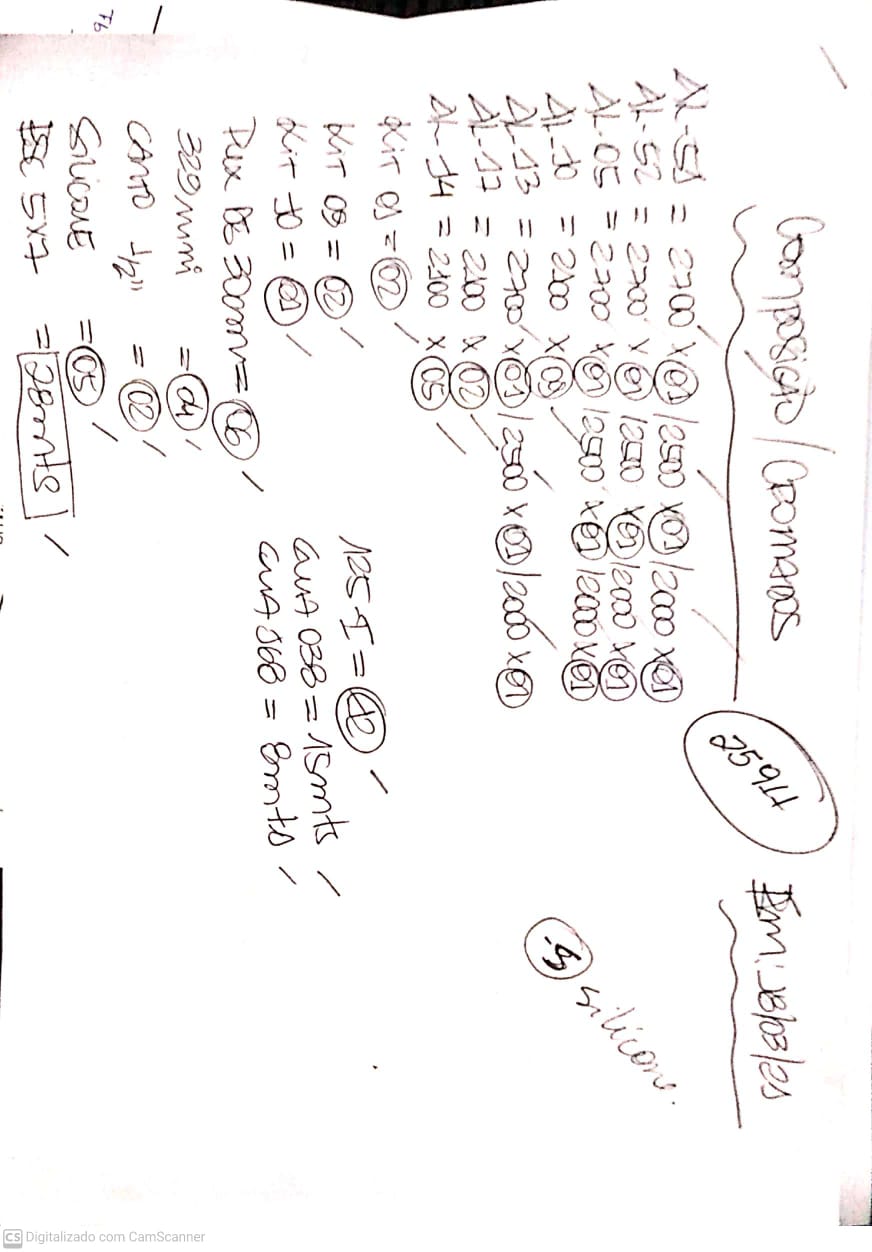 Composição / Cromados
25911
Em: 18/03/25
AL-51 = 2700 x 01 / 2500 x 01 / 2000 x 01
AL-52 = 2700 x 01 / 2500 x 01 / 2000 x 01
AL-05 = 2700 x 01 / 2500 x 01 / 2000 x 01
AL-10 = 2100 x
AL-13 = 2700 x 01 / 2500 x 01 / 2000 x 01
AL-17 = 2100 x 02
AL-14 = 2100 x 05
Kit 01 = 02
Kit 08 = 02
Kit 10 = 01
DE 30mm = 06
329 mini = 04
CANTO 1/2" = 02
Silicone = 05
5x7 = 28mts
125 I = 12
038 = 15mts
368 = 8mts
silicone.
CS Digitalizado com CamScanner